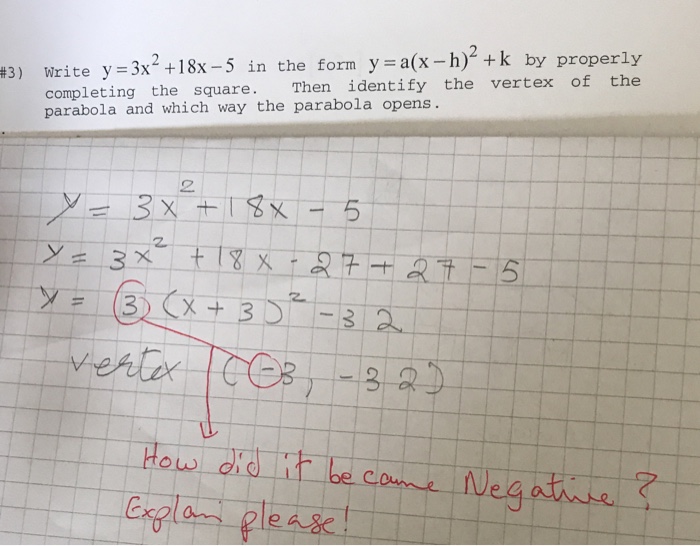 #3) Write y = 3x² + 18x – 5 in the form y = a(x – h)² + k by properly
completing the square. Then identify the vertex of the
parabola and which way the parabola opens.
y = 3x² + 18x - 5
y = 3x² + 18x - 27 + 27 - 5
y = 3(x + 3)² - 32
vertex (-3, -32)
How did it became Negative?
Explain please!